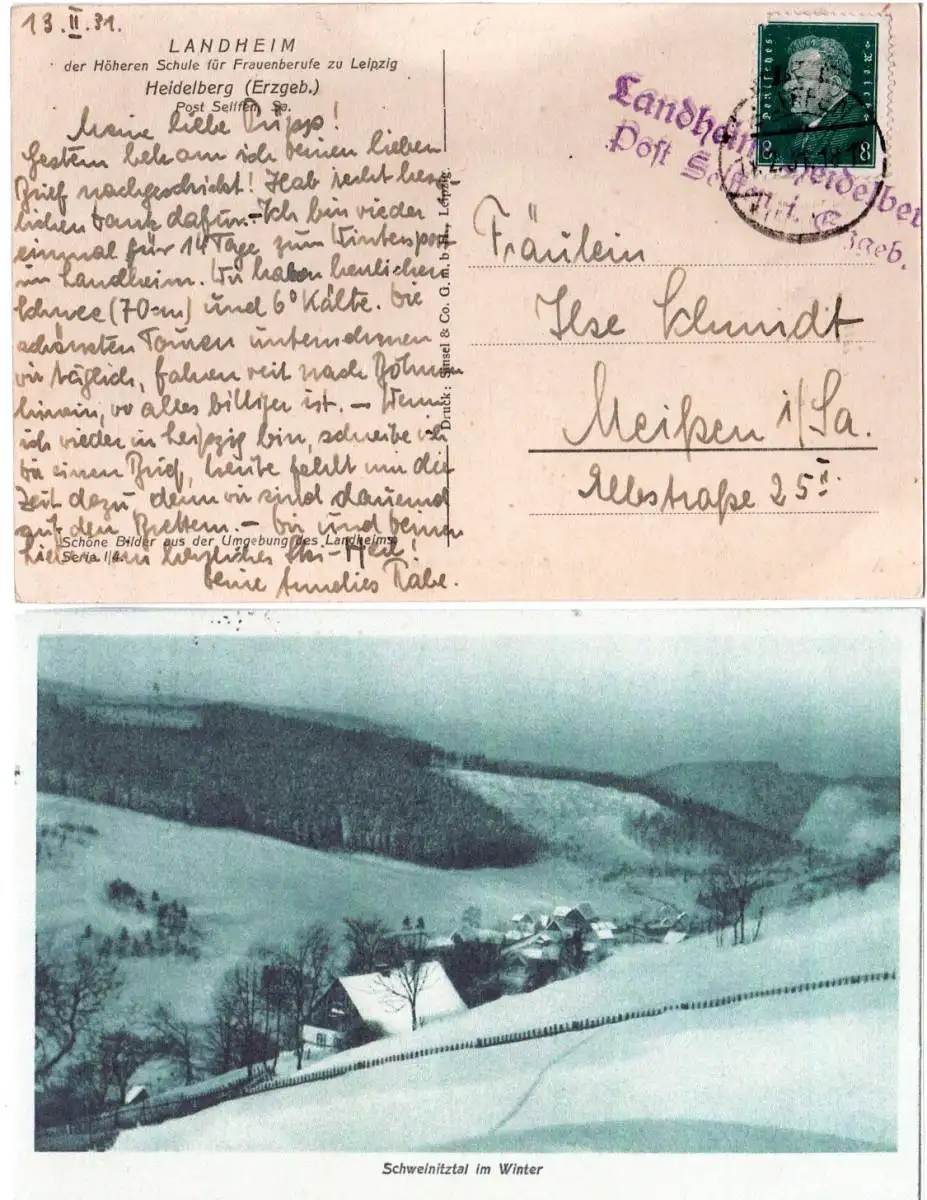 13.II.31.
LANDHEIM
der Höheren Schule für Frauenberufe zu Leipzig
Heidelberg (Erzgeb.)
Post Seiffen, Sa.
Meine liebe Pupps!
Gestern bekam ich deinen lieben
Brief nachgeschickt! Hab recht herz-
lichen Dank dafür.- Ich bin wieder
einmal für 14 Tage zum Wintersport
im Landheim. Wir haben herrlichen
Schnee (70cm) und 6° Kälte. Die
schönsten Touren unternehmen
wir täglich, fahren weit nach Böhmen
hinein, wo alles billiger ist. - Wenn
ich wieder in Leipzig bin, schreibe ich
dir einen Brief, heute fehlt mir die
Zeit dazu, denn wir sind dauernd
auf den Brettern. - Dir und deinen
Lieben ein herzliches Ski-Heil!
Deine Annelies Rabe.
Schöne Bilder aus der Umgebung des Landheims
Serie I/4.
Druck: Sinsel & Co. G. m. b. H., Leipzig.
Deutsches Reich
8 8
Landheim Heidelber
Post Seiffen i. Erzgeb.
Fräulein
Ilse Schmidt
Meißen i/Sa.
25II
Schweinitztal im Winter